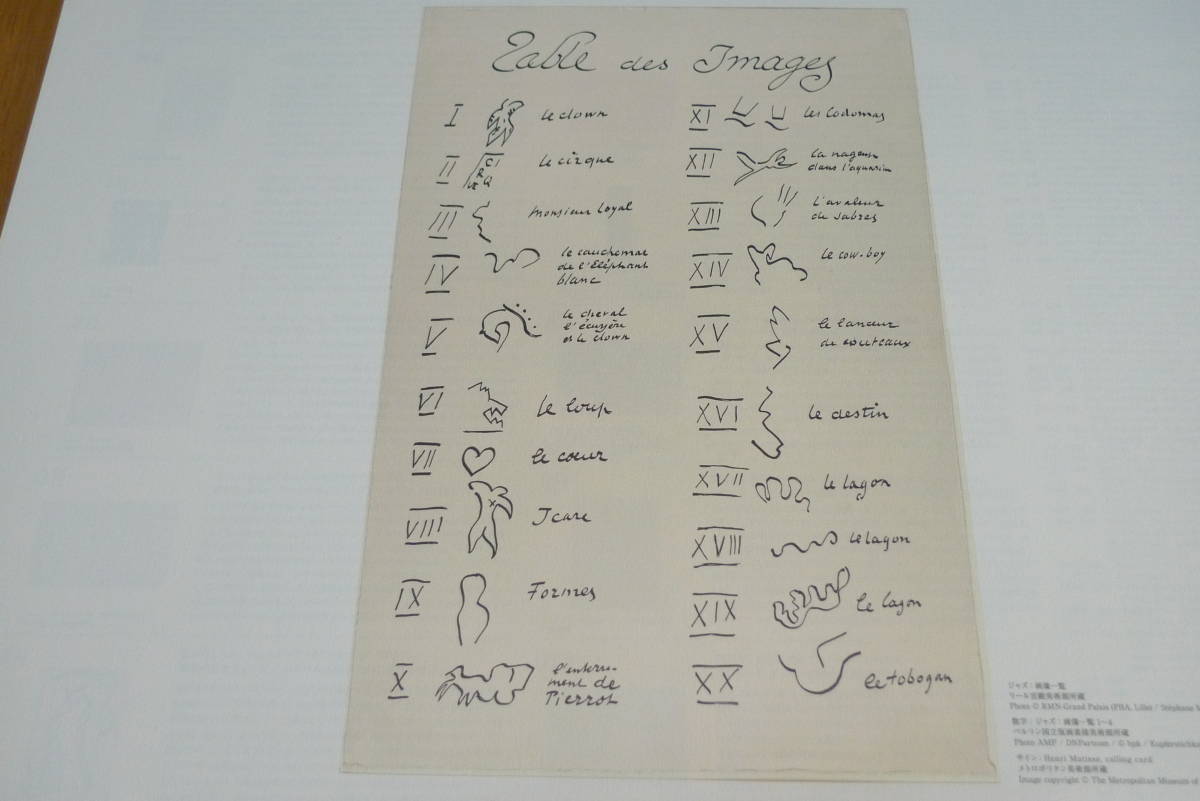 Table des Images
I le clown
II le cirque
III Monsieur Loyal
IV le cauchemar
de l'Eléphant
blanc
V le cheval
l'écuyère
et le clown
VI le loup
VII le cœur
VIII Icare
IX Formes
X l'enterre-
ment de
Pierrot
XI les Codomas
XII la nageuse
dans l'aquarium
XIII l'avaleur
de sabres
XIV le cow-boy
XV le lanceur
de couteaux
XVI le destin
XVII le lagon
XVIII le lagon
XIX le lagon
XX le tobogan
ジャズ：画像一覧
リール宮殿美術館所蔵
Photo © RMN-Grand Palais (PBA, Lille) / Stéphane
数字：ジャズ：画像一覧 1〜4
ベルリン国立版画素描美術館所蔵
Photo AMF / DNPartcom / © bpk /
サイン：Henri Matisse, calling card
メトロポリタン美術館所蔵
Image copyright © The Metropolitan Museum of